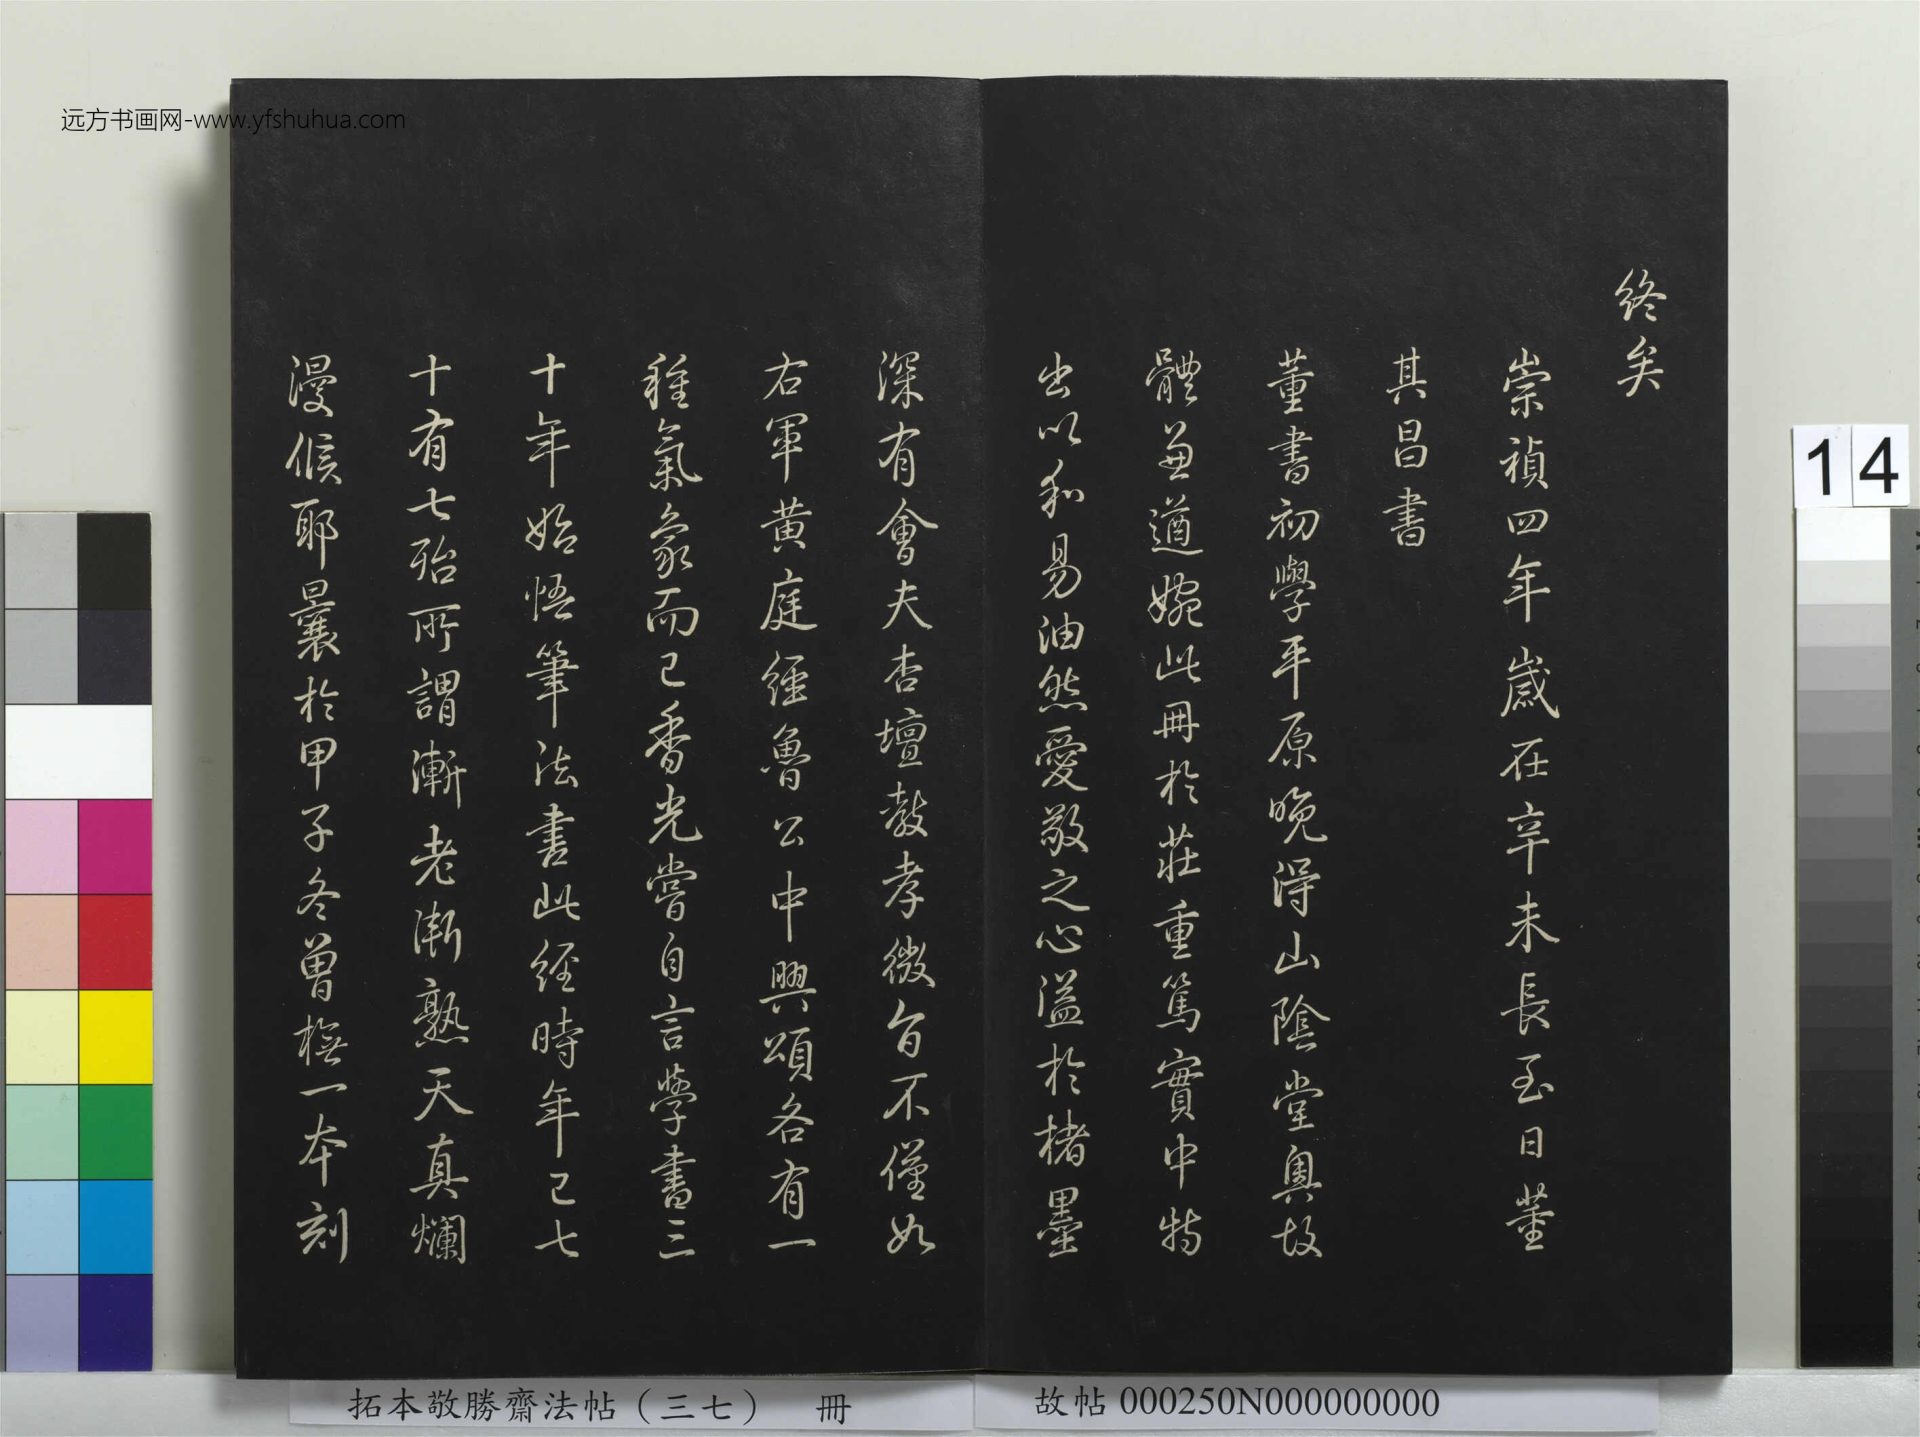 远方书画网-www.yfshuhua.com
終矣
崇禎四年歲在辛未長至日董
其昌書
董書初學平原晚得山陰堂奧故
體兼遒婉此冊於莊重篤實中特
出以和易油然愛敬之心溢於楮墨
深有會夫杏壇教孝微旨不僅如
右軍黃庭經魯公中興頌各有一
種氣象而已香光嘗自言學書三
十年始悟筆法書此經時年已七
十有七殆所謂漸老漸熟天真爛
漫候耶曩於甲子冬曾橅一本刻
14
拓本敬勝齋法帖（三七） 冊
故帖 000250N000000000